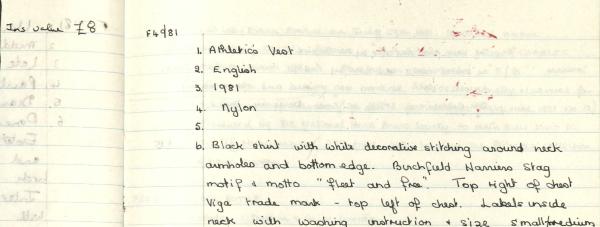 Ins value £8
F49/81
1. Athletics Vest
2. English
3. 1981
4. Nylon
5.
6. Black shirt with white decorative stitching around neck
armholes and bottom edge. Birchfield Harriers Stag
motif & motto "fleet and free". Top right of chest
Viga trade mark - top left of chest. Labels inside
neck with washing instruction & size small/medium